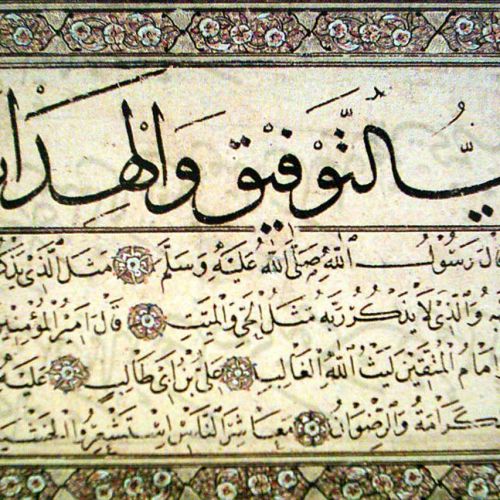 التَّوْفِيق وَالْهِدَا
قَالَ رَسُولُ اللهِ صَلَّى اللهُ عَلَيْهِ وَسَلَّمَ مَثَلُ الَّذِي يَذْكُرُ
وَالَّذِي لَا يَذْكُرُ رَبَّهُ مَثَلُ الْحَيِّ وَالْمَيِّتِ قَالَ اَمِيرُ الْمُؤْمِنِينَ
وَاِمَامُ الْمُتَّقِينَ لَيْثُ اللهِ الْغَالِبِ عَلِيُّ بْنُ اَبِي طَالِبٍ عَلَيْهِ
كَرَامَةُ وَالرِّضْوَانُ مَعَاشِرَ النَّاسِ اِسْتَشْعِرُوا الْخَشْيَة